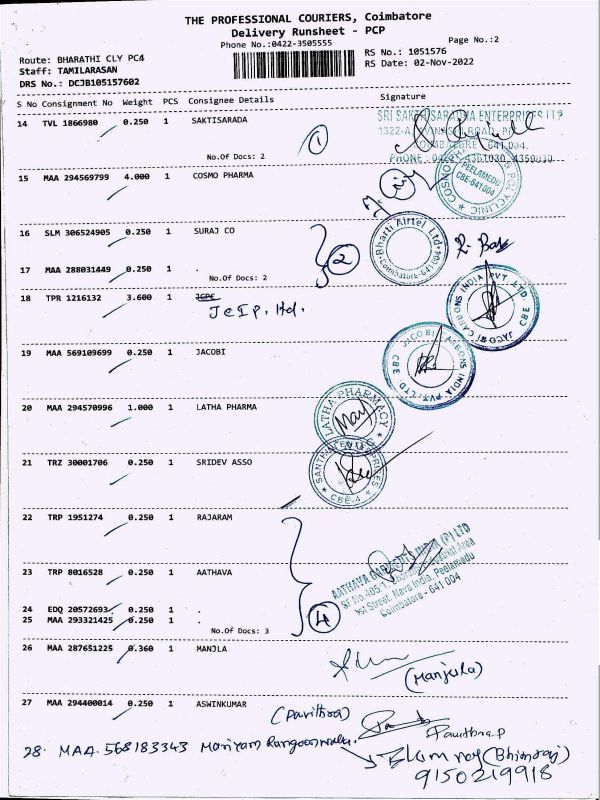 THE PROFESSIONAL COURIERS, Coimbatore
Delivery Runsheet - PCP
Phone No.:0422-3505555
Page No.:2
Route: BHARATHI CLY PC4
Staff: TAMILARASAN
DRS No.: DCJB105157602
RS No.: 1051576
RS Date: 02-Nov-2022
S No Consignment No Weight PCS Consignee Details Signature
14 TVL 1866980 0.250 1 SAKTISARADA
No.Of Docs: 2
1
15 MAA 294569799 4.000 1 COSMO PHARMA
PEELAMEDU
CBE-641 004
POLYCLINIC
16 SLM 306524905 0.250 1 SURAJ CO
17 MAA 288031449 0.250 1 .
No.Of Docs: 2
2
Bharti Airtel Ltd
Coimbatore-641 004
18 TPR 1216132 3.600 1 JCPC
JCIP. Ltd.
JACOBI CARBONS INDIA PVT LTD
CBE
19 MAA 569109699 0.250 1 JACOBI
JACOBI CARBONS INDIA PVT. LTD
CBE
20 MAA 294570996 1.000 1 LATHA PHARMA
LATHA PHARMACY
21 TRZ 30001706 0.250 1 SRIDEV ASSO
CBE-4
22 TRP 1951274 0.250 1 RAJARAM
23 TRP 8016528 0.250 1 AATHAVA
24 EDQ 20572693 0.250 1 .
25 MAA 293321425 0.250 1 .
No.Of Docs: 3
4
AATHAVA GARMENTS INDIA (P) LTD
1st Street, Nava India, Peelamedu
Coimbatore - 641 004
26 MAA 287651225 0.360 1 MANJLA
(Manjula)
27 MAA 294400014 0.250 1 ASWINKUMAR
(Pavithra)
Pavithra.P
28. MAA 568183343 Mariyam Rangoonwala.
(Bhimraj)
9150219918